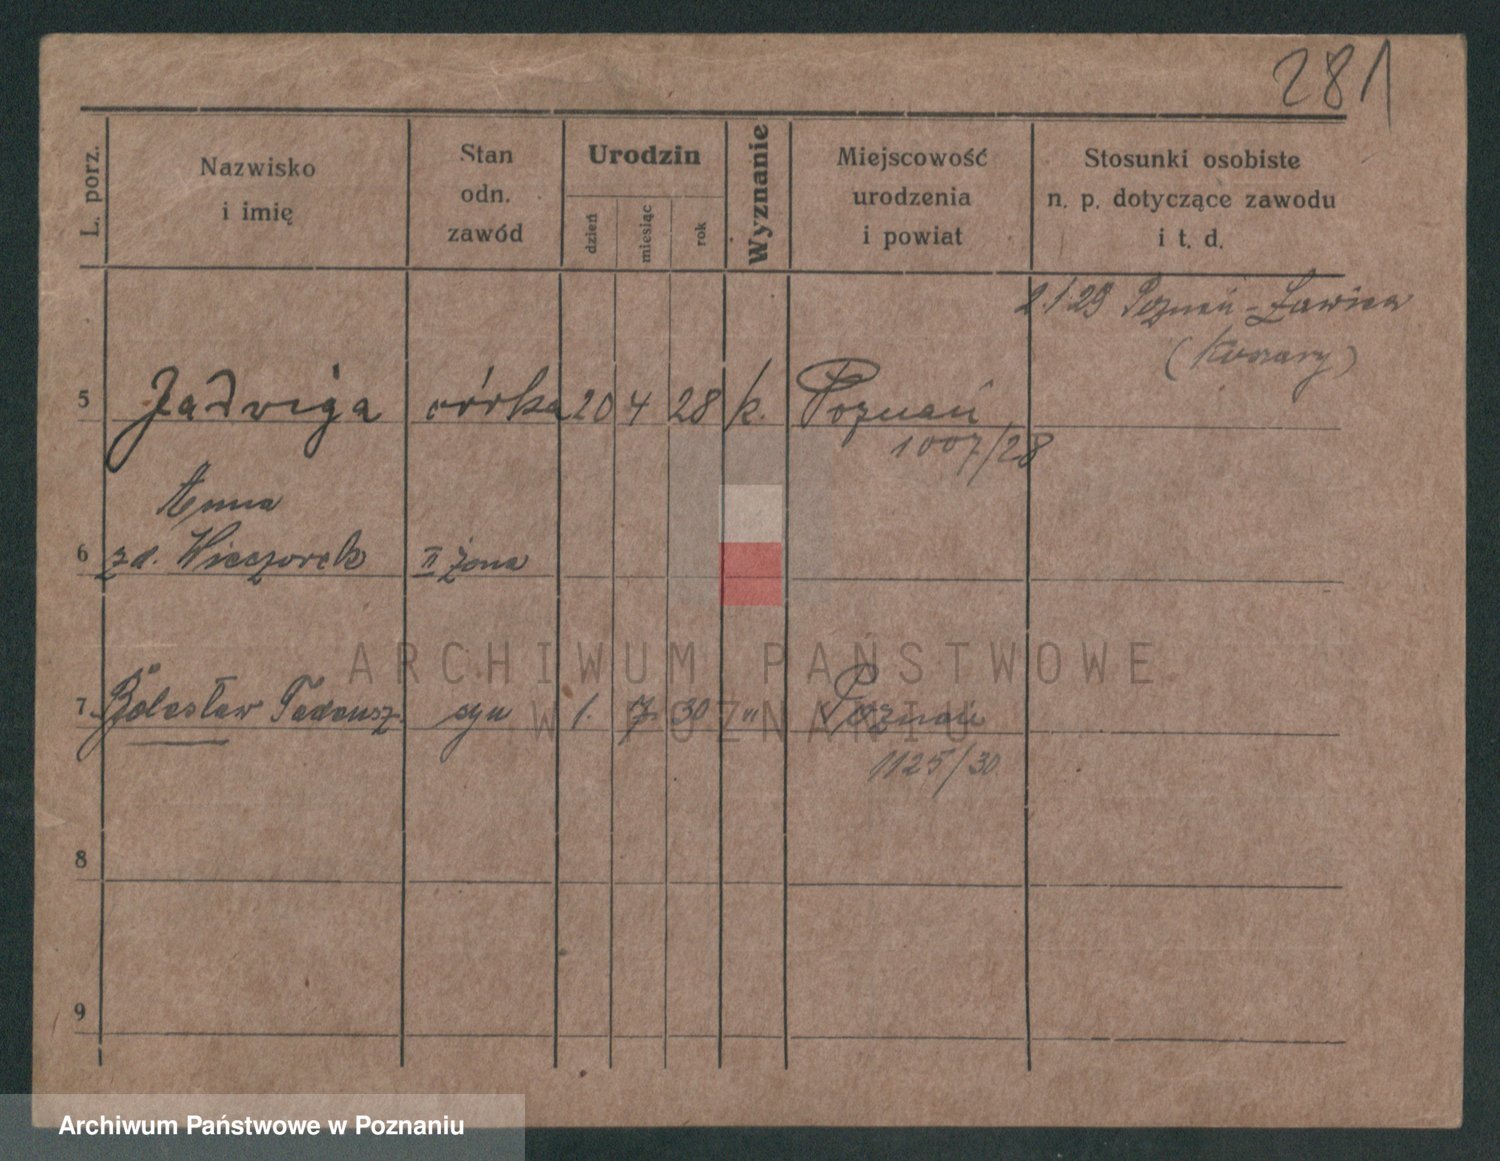 281
L. porz.
Nazwisko
i imię
Stan
odn.
zawód
Urodzin
dzień
miesiąc
rok
Wyznanie
Miejscowość
urodzenia
i powiat
Stosunki osobiste
n. p. dotyczące zawodu
i t. d.
2.1.29 Poznań-Ławica
(Koszary)
5 Jadwiga córka 20 4 28 k. Poznań
1007/28
Anna
6 zd. Wieczorek II żona
7 Bolesław Tadeusz syn 1. 7. 30 " Poznań
1125/30
8
9
ARCHIWUM PAŃSTWOWE
W POZNANIU
Archiwum Państwowe w Poznaniu